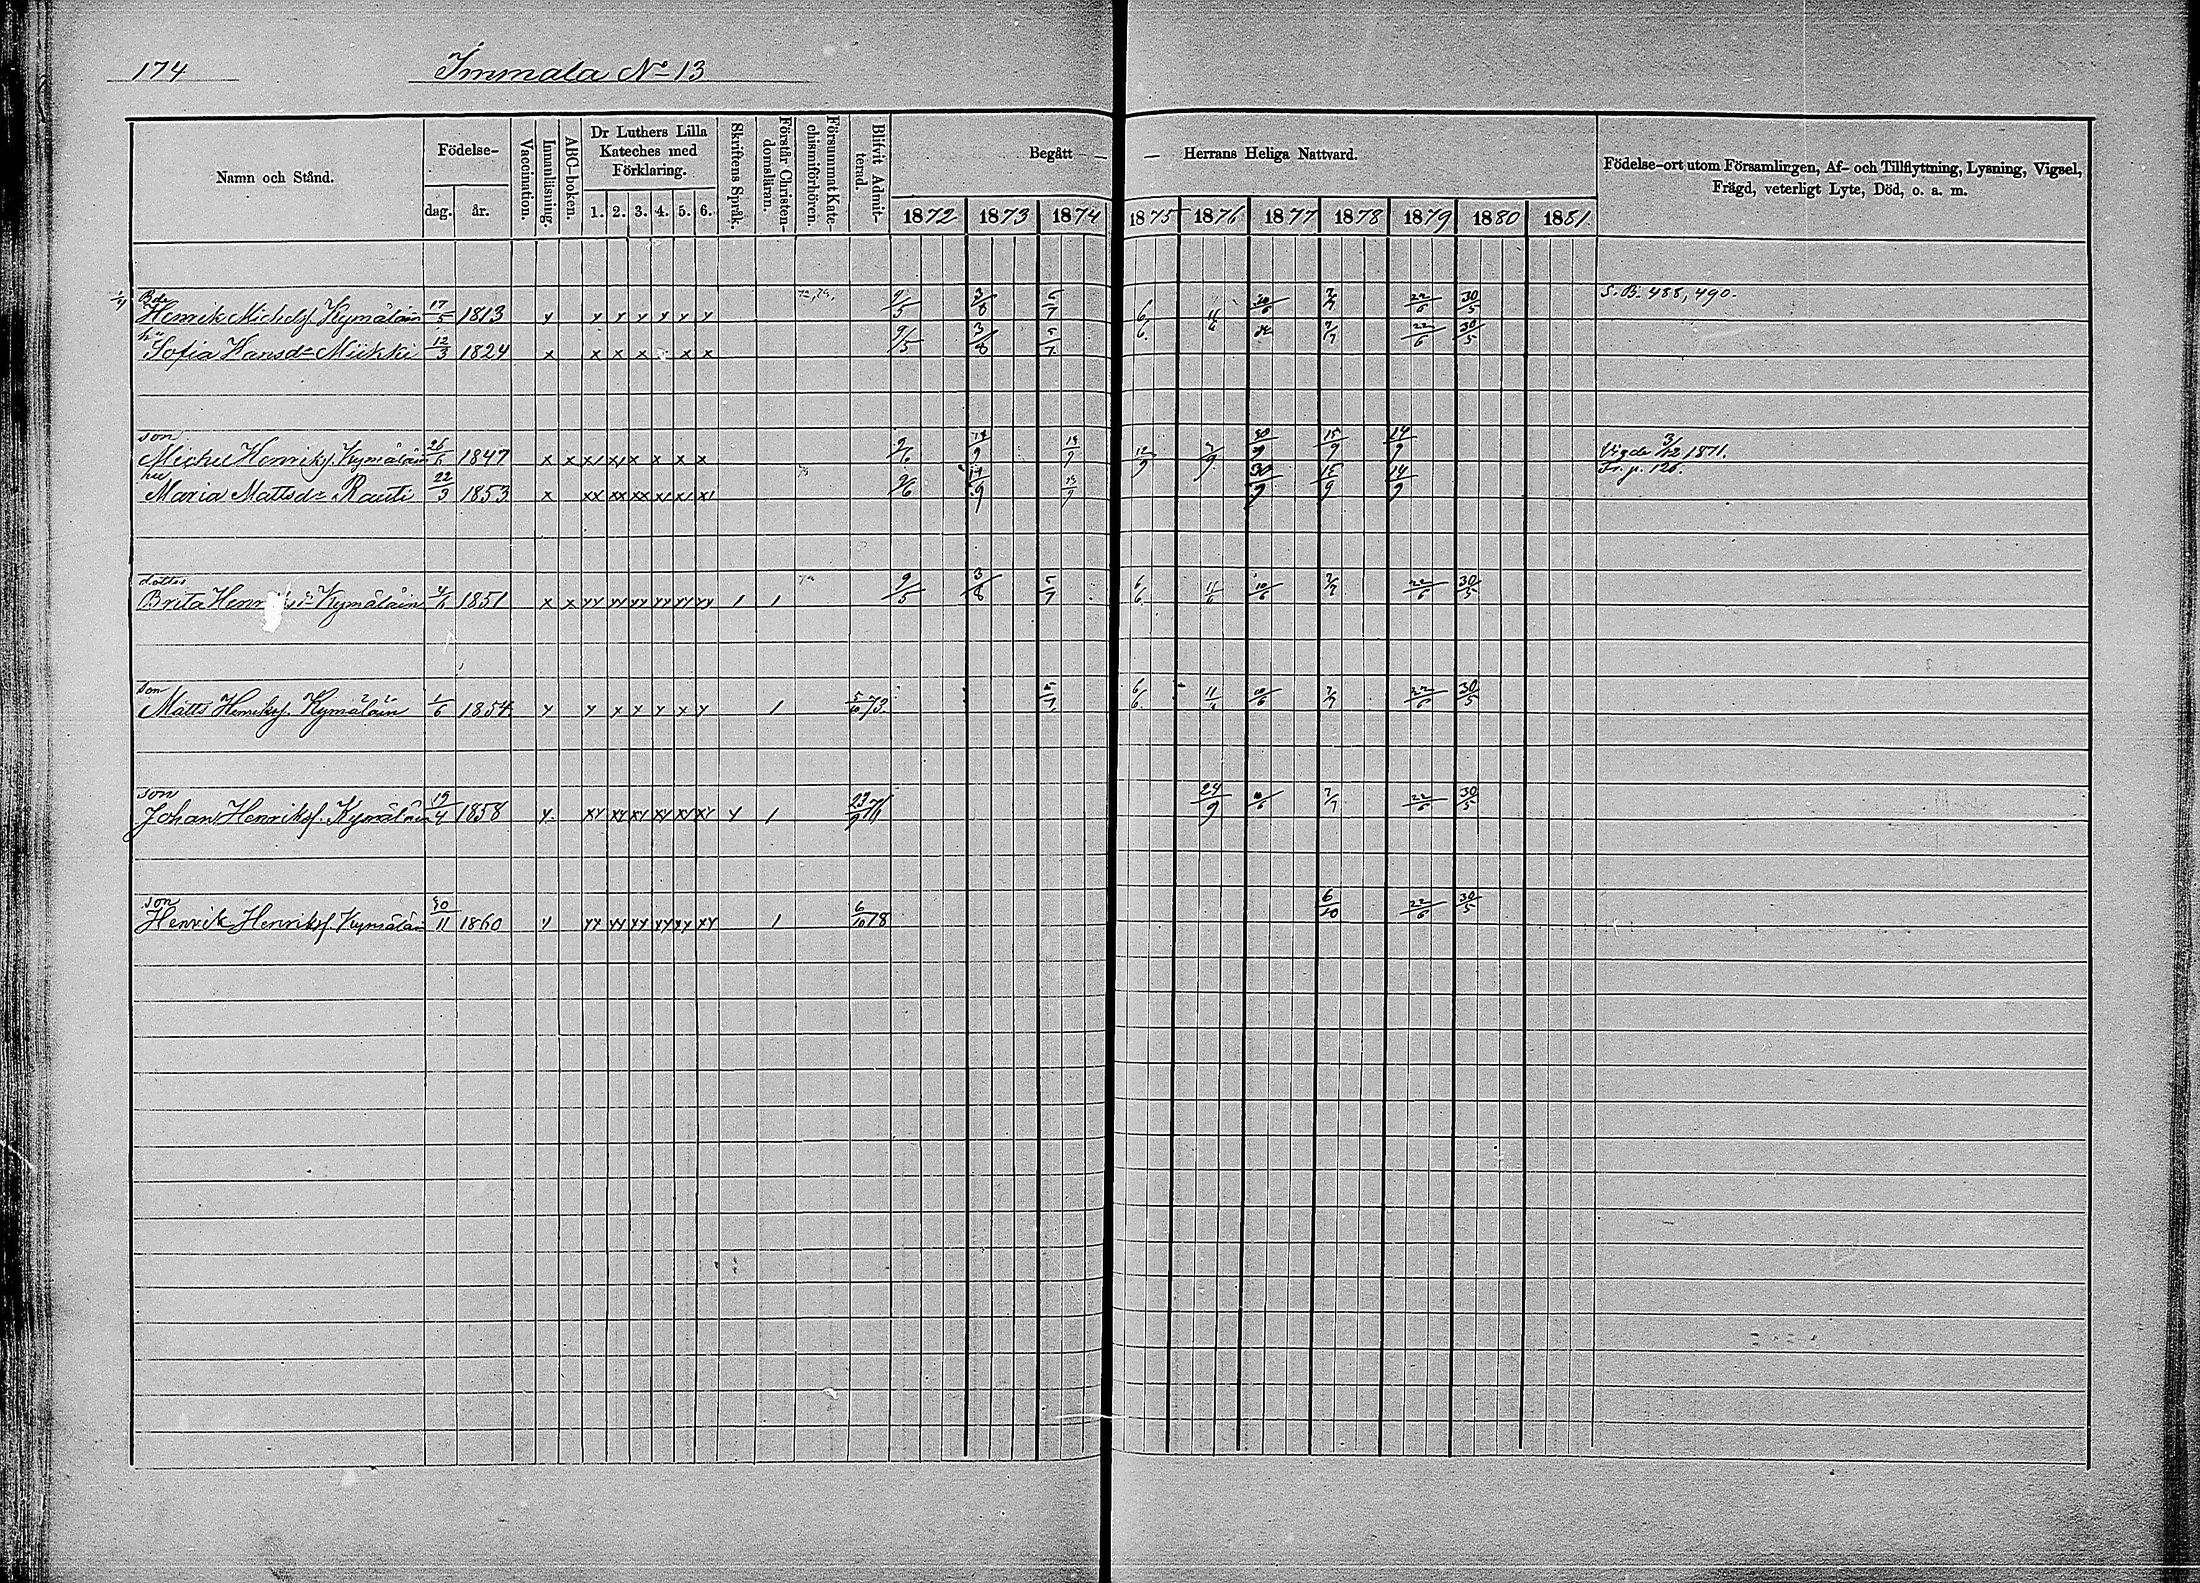 174
Immala No 13
Namn och Stånd.
Födelse-
dag. år.
Vaccination.
Innanläsning.
ABC-boken.
Dr Luthers Lilla Kateches med Förklaring.
1. 2. 3. 4. 5. 6.
Skriftens Språk.
Förstår Christendomslänn.
Försummat Katechismiförhören.
Blifvit Admitterad.
Begått — — Herrans Heliga Nattvard.
1872 1873 1874 1875 1876 1877 1878 1879 1880 1881
Födelse-ort utom Församlingen, Af- och Tillflyttning, Lysning, Vigsel,
Frägd, veterligt Lyte, Död, o. a. m.
Bde
Henrik Michelsf. Kymäläin 17/5 1813 y y y y y y y 9/5 3/8 5/7 6/6 11/6 10/6 7/7 22/6 30/5 S. B. 488, 490.
hu
Sofia Hansdr Miikki 12/3 1824 x x x x x x 9/5 3/8 5/7 6/6 11/6 7/7 22/6 30/5
son
Michel Henriksf. Kymäläin 1847 x x x x x x x x 9/6 14/9 12/9 30/9 15/9 14/9 Vigde 3/12 1871.
hu
Maria Mattsdr Rauti 22/3 1853 x xx xx xx x x x 9/6 14/9 30/9 15/9 14/9 Fr. p. 126.
dotter
Brita Kymäläin 4/6 1851 x x yy yy yy yy yy yy 1 1 9/5 3/8 5/7 6/6 11/6 10/6 7/7 22/6 30/5
son
Matts Henriksf. Kymäläin 1/6 1854 y y x x y x y 1 5/10 73. 5/7 6/6 11/6 10/6 7/7 22/6 30/5
son
Johan Henriksf. Kymäläin 19/4 1858 y xy xy xy xy xy xy y 1 23/9 76 24/9 10/6 7/7 22/6 30/5
son
Henrik Henriksf. Kymäläin 30/11 1860 y yy yy yy yy yy yy 1 6/10 78 6/10 22/6 30/5